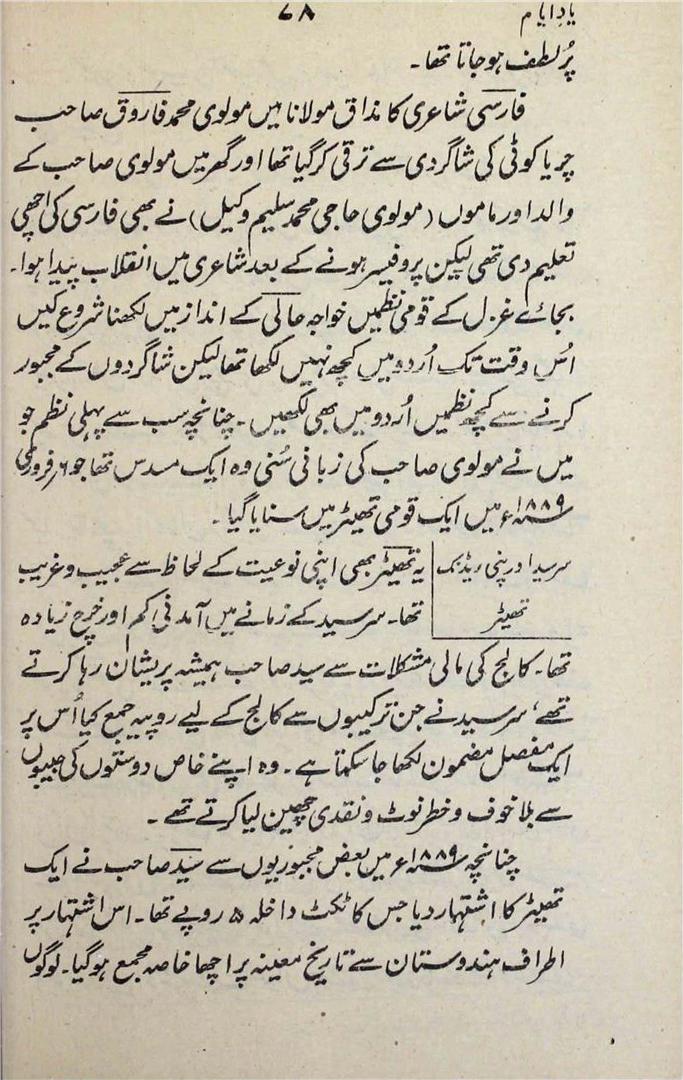 یادِ ایام ۶۸
پُر لطف ہو جاتا تھا۔
فارسی شاعری کا مذاق مولانا میں مولوی محمد فاروق صاحب
چریا کوٹی کی شاگردی سے ترقی کر گیا تھا اور گھر میں مولوی صاحب کے
والد اور ماموں (مولوی حاجی محمد سلیم وکیل) نے بھی فارسی کی اچھی
تعلیم دی تھی لیکن پروفیسر ہونے کے بعد شاعری میں انقلاب پیدا ہوا۔
بجائے غزل کے قومی نظمیں خواجہ حالی کے انداز میں لکھنا شروع کیں
اُس وقت تک اُردو میں کچھ نہیں لکھا تھا لیکن شاگردوں کے مجبور
کرنے سے کچھ نظمیں اُردو میں بھی لکھیں۔ چنانچہ سب سے پہلی نظم جو
میں نے مولوی صاحب کی زبانی سُنی وہ ایک مسدس تھا جو ۶؍ فروری
۱۸۸۹ء میں ایک قومی تھیٹر میں سنایا گیا۔
سرسید اور پنی ریڈنگ
تھیٹر
یہ تھیٹر بھی اپنی نوعیت کے لحاظ سے عجیب و غریب
تھا۔ سرسید کے زمانے میں آمدنی کم اور خرچ زیادہ
تھا۔ کالج کی مالی مشکلات سے سید صاحب ہمیشہ پریشان رہا کرتے
تھے، سرسید نے جن ترکیبوں سے کالج کے لیے روپیہ جمع کیا اُس پر
ایک مفصل مضمون لکھا جا سکتا ہے۔ وہ اپنے خاص دوستوں کی جیبوں
سے بلا خوف و خطر نوٹ و نقدی چھین لیا کرتے تھے۔
چنانچہ ۱۸۸۹ء میں بعض مجبوریوں سے سیّد صاحب نے ایک
تھیٹر کا اشتہار دیا جس کا ٹکٹ داخلہ ۵ روپے تھا۔ اس اشتہار پر
اطراف ہندوستان سے تاریخ معینہ پر اچھا خاصہ مجمع ہو گیا۔ لوگوں